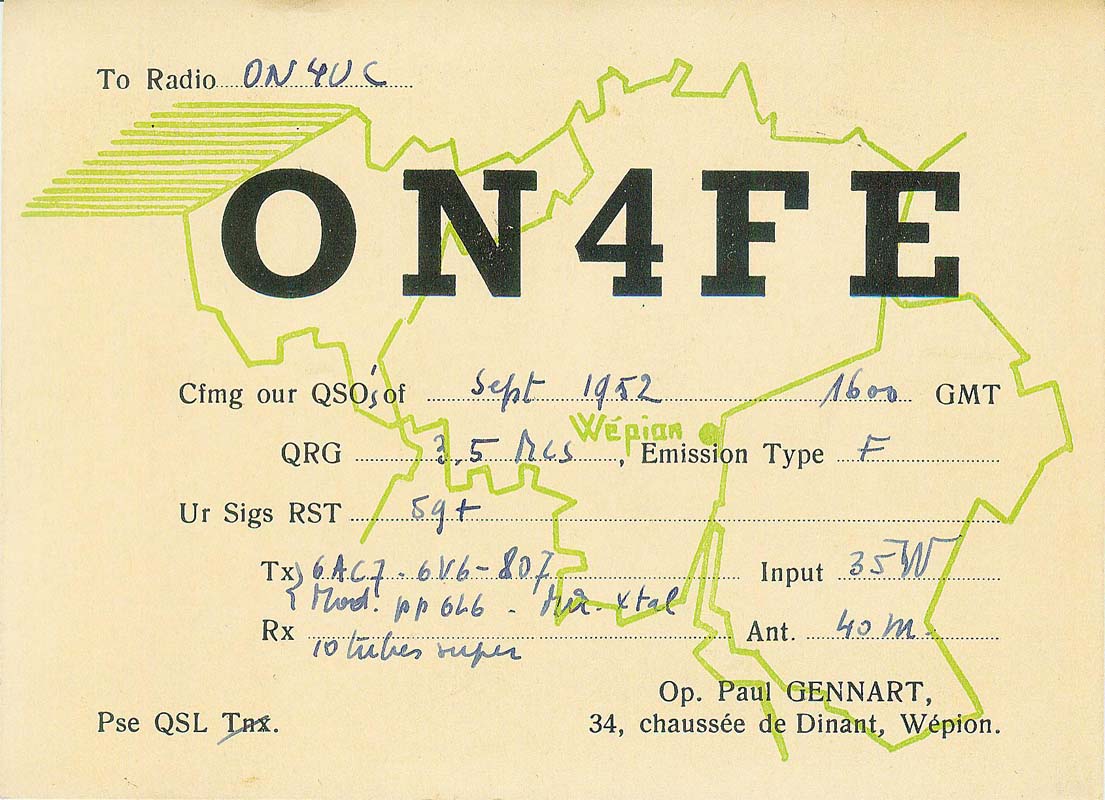 To Radio ON4UC
ON4FE
Cfmg our QSO's of Sept 1952 1600 GMT
Wépion
QRG 3,5 Mcs, Emission Type F
Ur Sigs RST 59+
Tx 6AC7 - 6V6 - 807 Input 35W
Mod. pp 6L6 - xtal
Rx 10 tubes super Ant. 40 m.
Op. Paul GENNART,
Pse QSL Tnx. 34, chaussée de Dinant, Wépion.